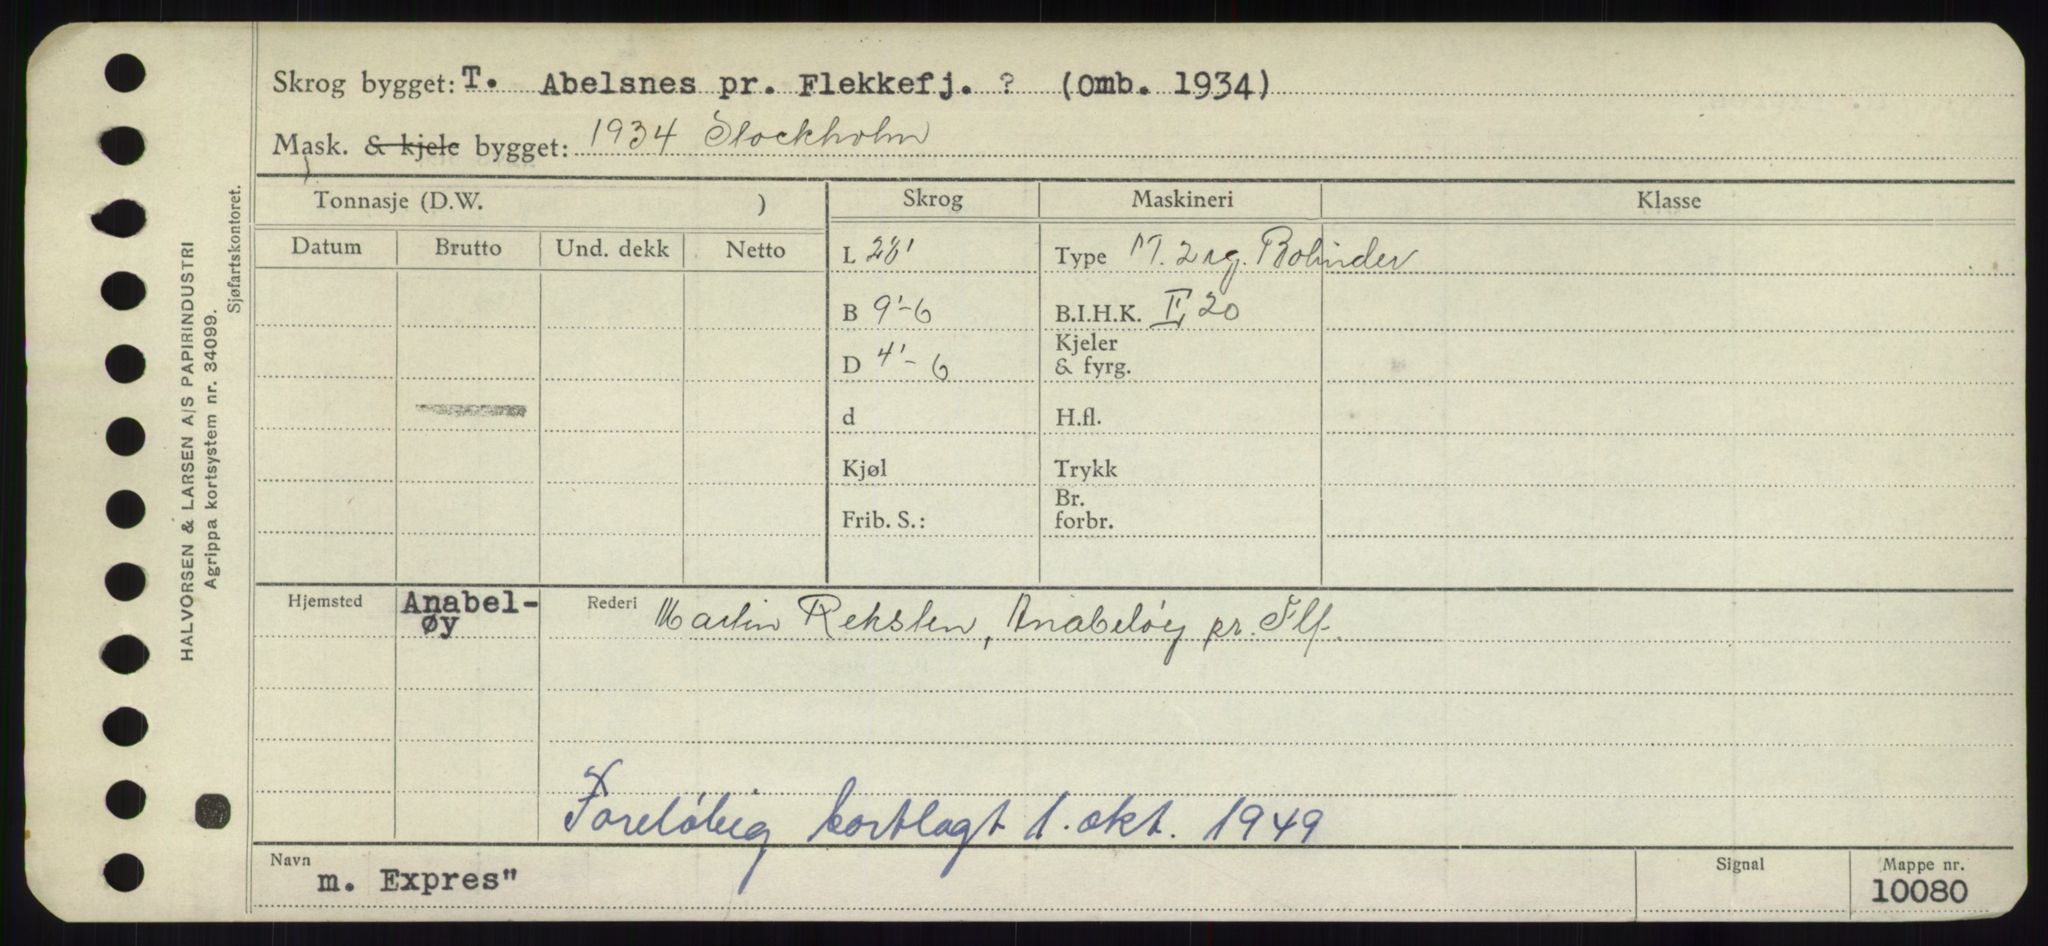 Skrog bygget: T. Abelsnes pr. Flekkefj. ? (Omb. 1934)
Mask. & kjele bygget: 1934 Stockholm
Tonnasje (D.W. )
Skrog
Maskineri
Klasse
Datum
Brutto
Und. dekk
Netto
L 28'
Type M. 2 sg. Bolinder
B 9'-6
B.I.H.K. II, 20
D 4'-6
Kjeler
& fyrg.
d
H.fl.
Kjøl
Trykk
Frib. S.:
Br.
forbr.
Hjemsted
Anabel-
øy
Rederi Martin Reksten, Anabeløy pr. Flf.
Foreløbig kortlagt 1. okt. 1949
Navn
m. Expres"
Signal
Mappe nr.
10080
HALVORSEN & LARSEN A/S PAPIRINDUSTRI
Agrippa kortsystem nr. 34099.
Sjøfartskontoret.